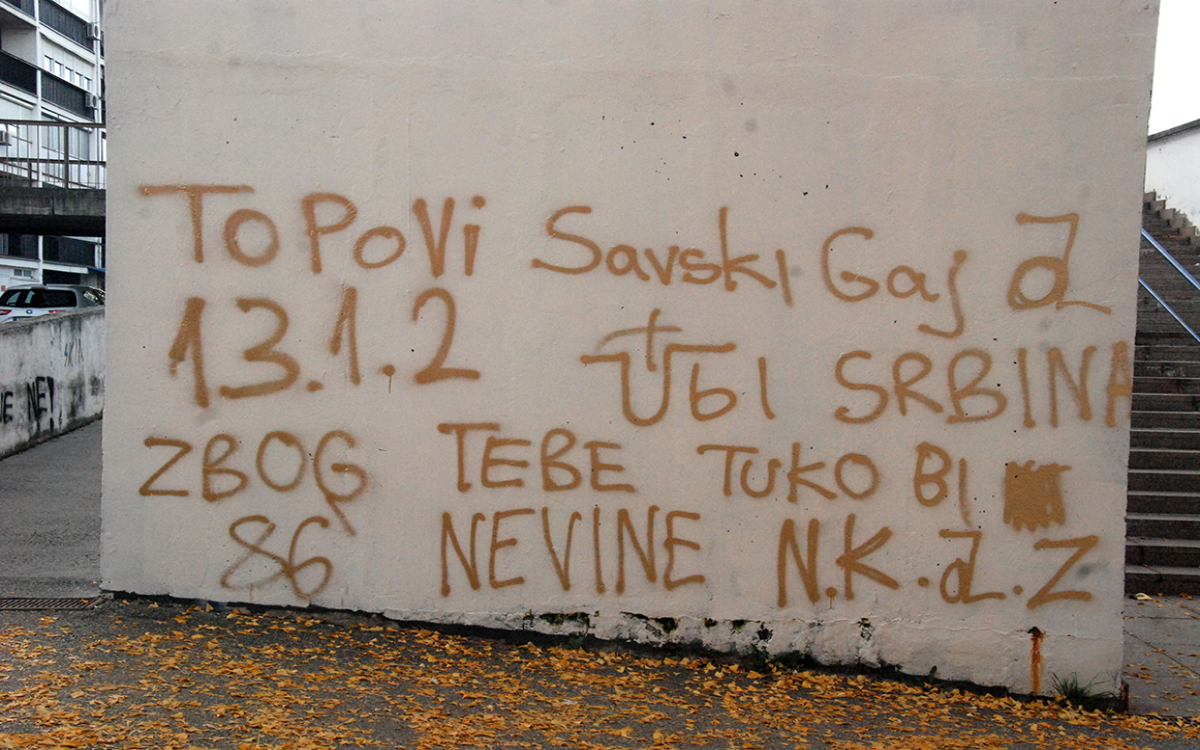 TOPOVi Savski Gaj
13.1.2 Ubi SRBINA
ZBOG TEBE TUKO BI
86 NEVINE N.K.d.Z
NE!